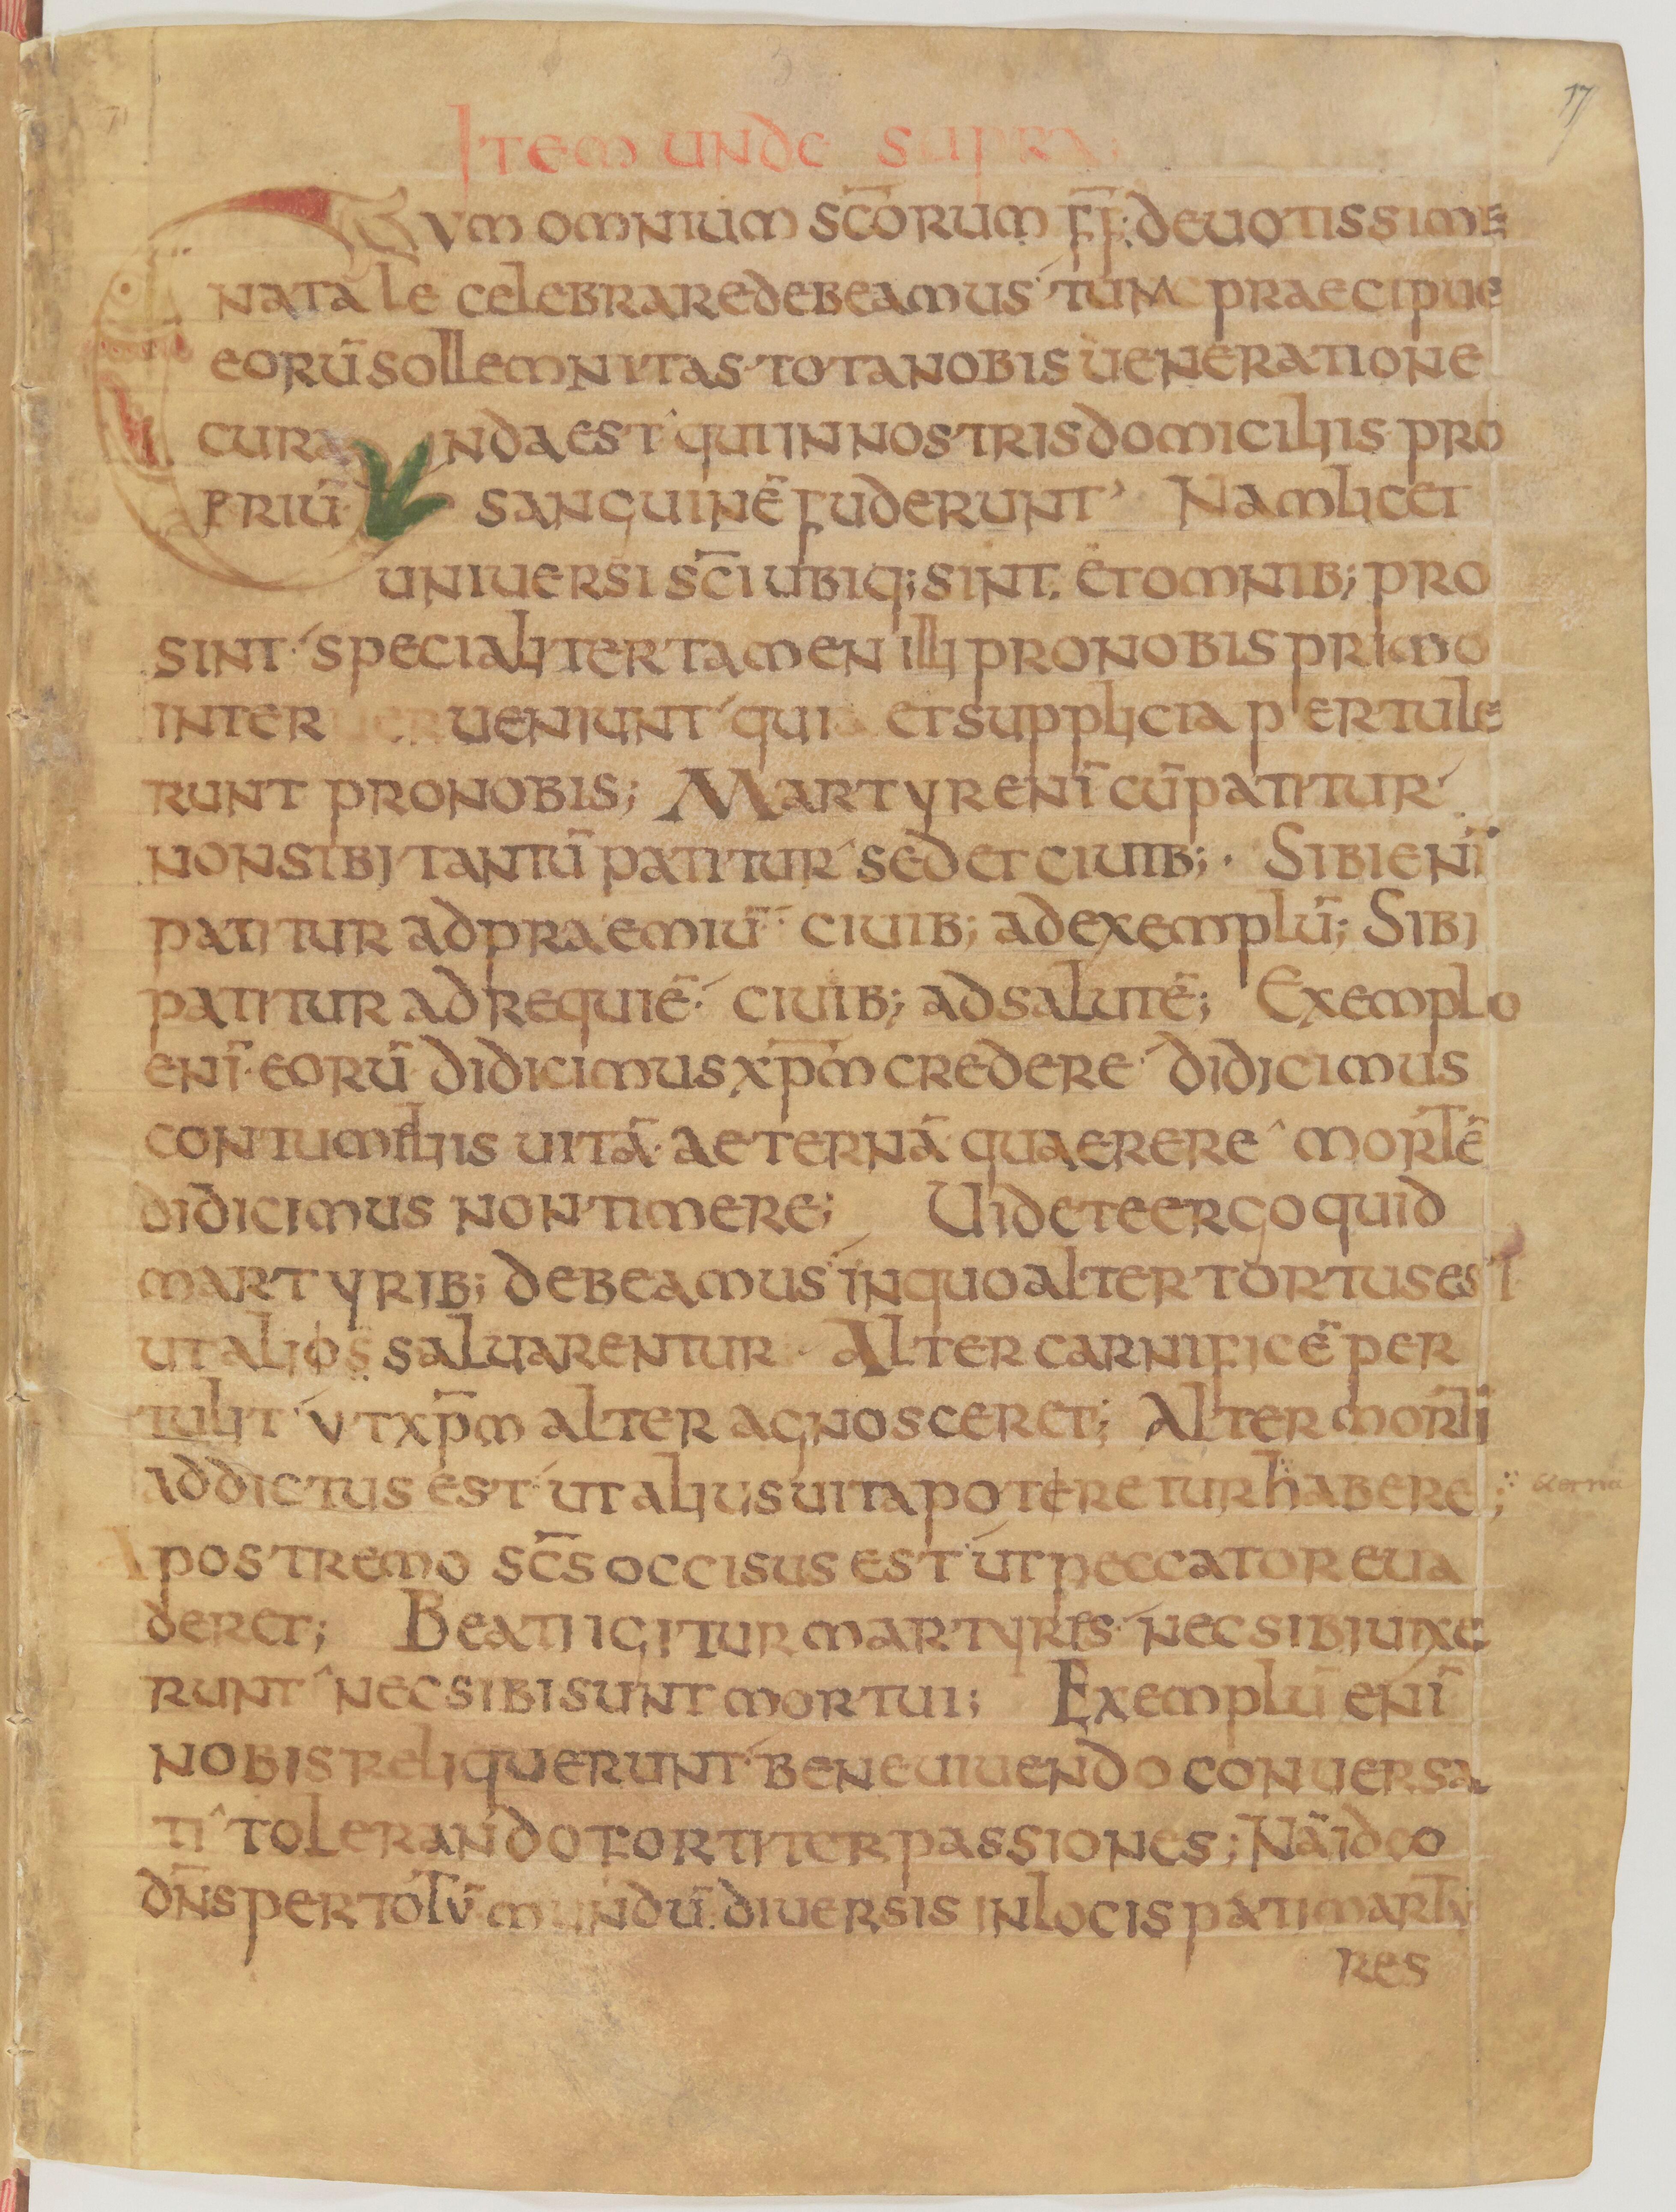 17
Item unde supra;
CUm omnium sc̄orum f̄f̄; deuotissime
natale celebrare debeamus tunc praecipue
eorū sollemnitas tota nobis ueneratione
curanda est qui in nostris domiciliis pro
priū sanguinē fuderunt Nam licet
uniuersi sc̄i ubiq; sint et omnib; pro
sint specialiter tamen illi pro nobis primo
interueniunt qui et supplicia pertule
runt pro nobis; Martyr enī cū patitur
non sibi tantū patitur sed et ciuib; Sibi enī
patitur ad praemiū ciuib; ad exemplū; Sibi
patitur ad requiē ciuib; ad salutē; Exemplo
enī eorū didicimus xp̄m credere didicimus
contumeliis uitā aeternā quaerere mortē
didicimus non timere; Uidete ergo quid
martyrib; debeamus in quo alter tortus est
ut alios saluarentur Alter carnificē per
tulit ut xp̄m alter agnosceret; Alter morti
addictus est ut alius uita poteretur habere; aeternā
postremo sc̄s occisus est ut peccator eua
deret; Beati igitur martyres nec sibi uixe
runt nec sibi sunt mortui; Exemplū enī
nobis reliquerunt bene uiuendo conuersa
ti tolerando fortiter passiones; Nā ideo
dn̄s per totū mundū diuersis in locis pati marty
res